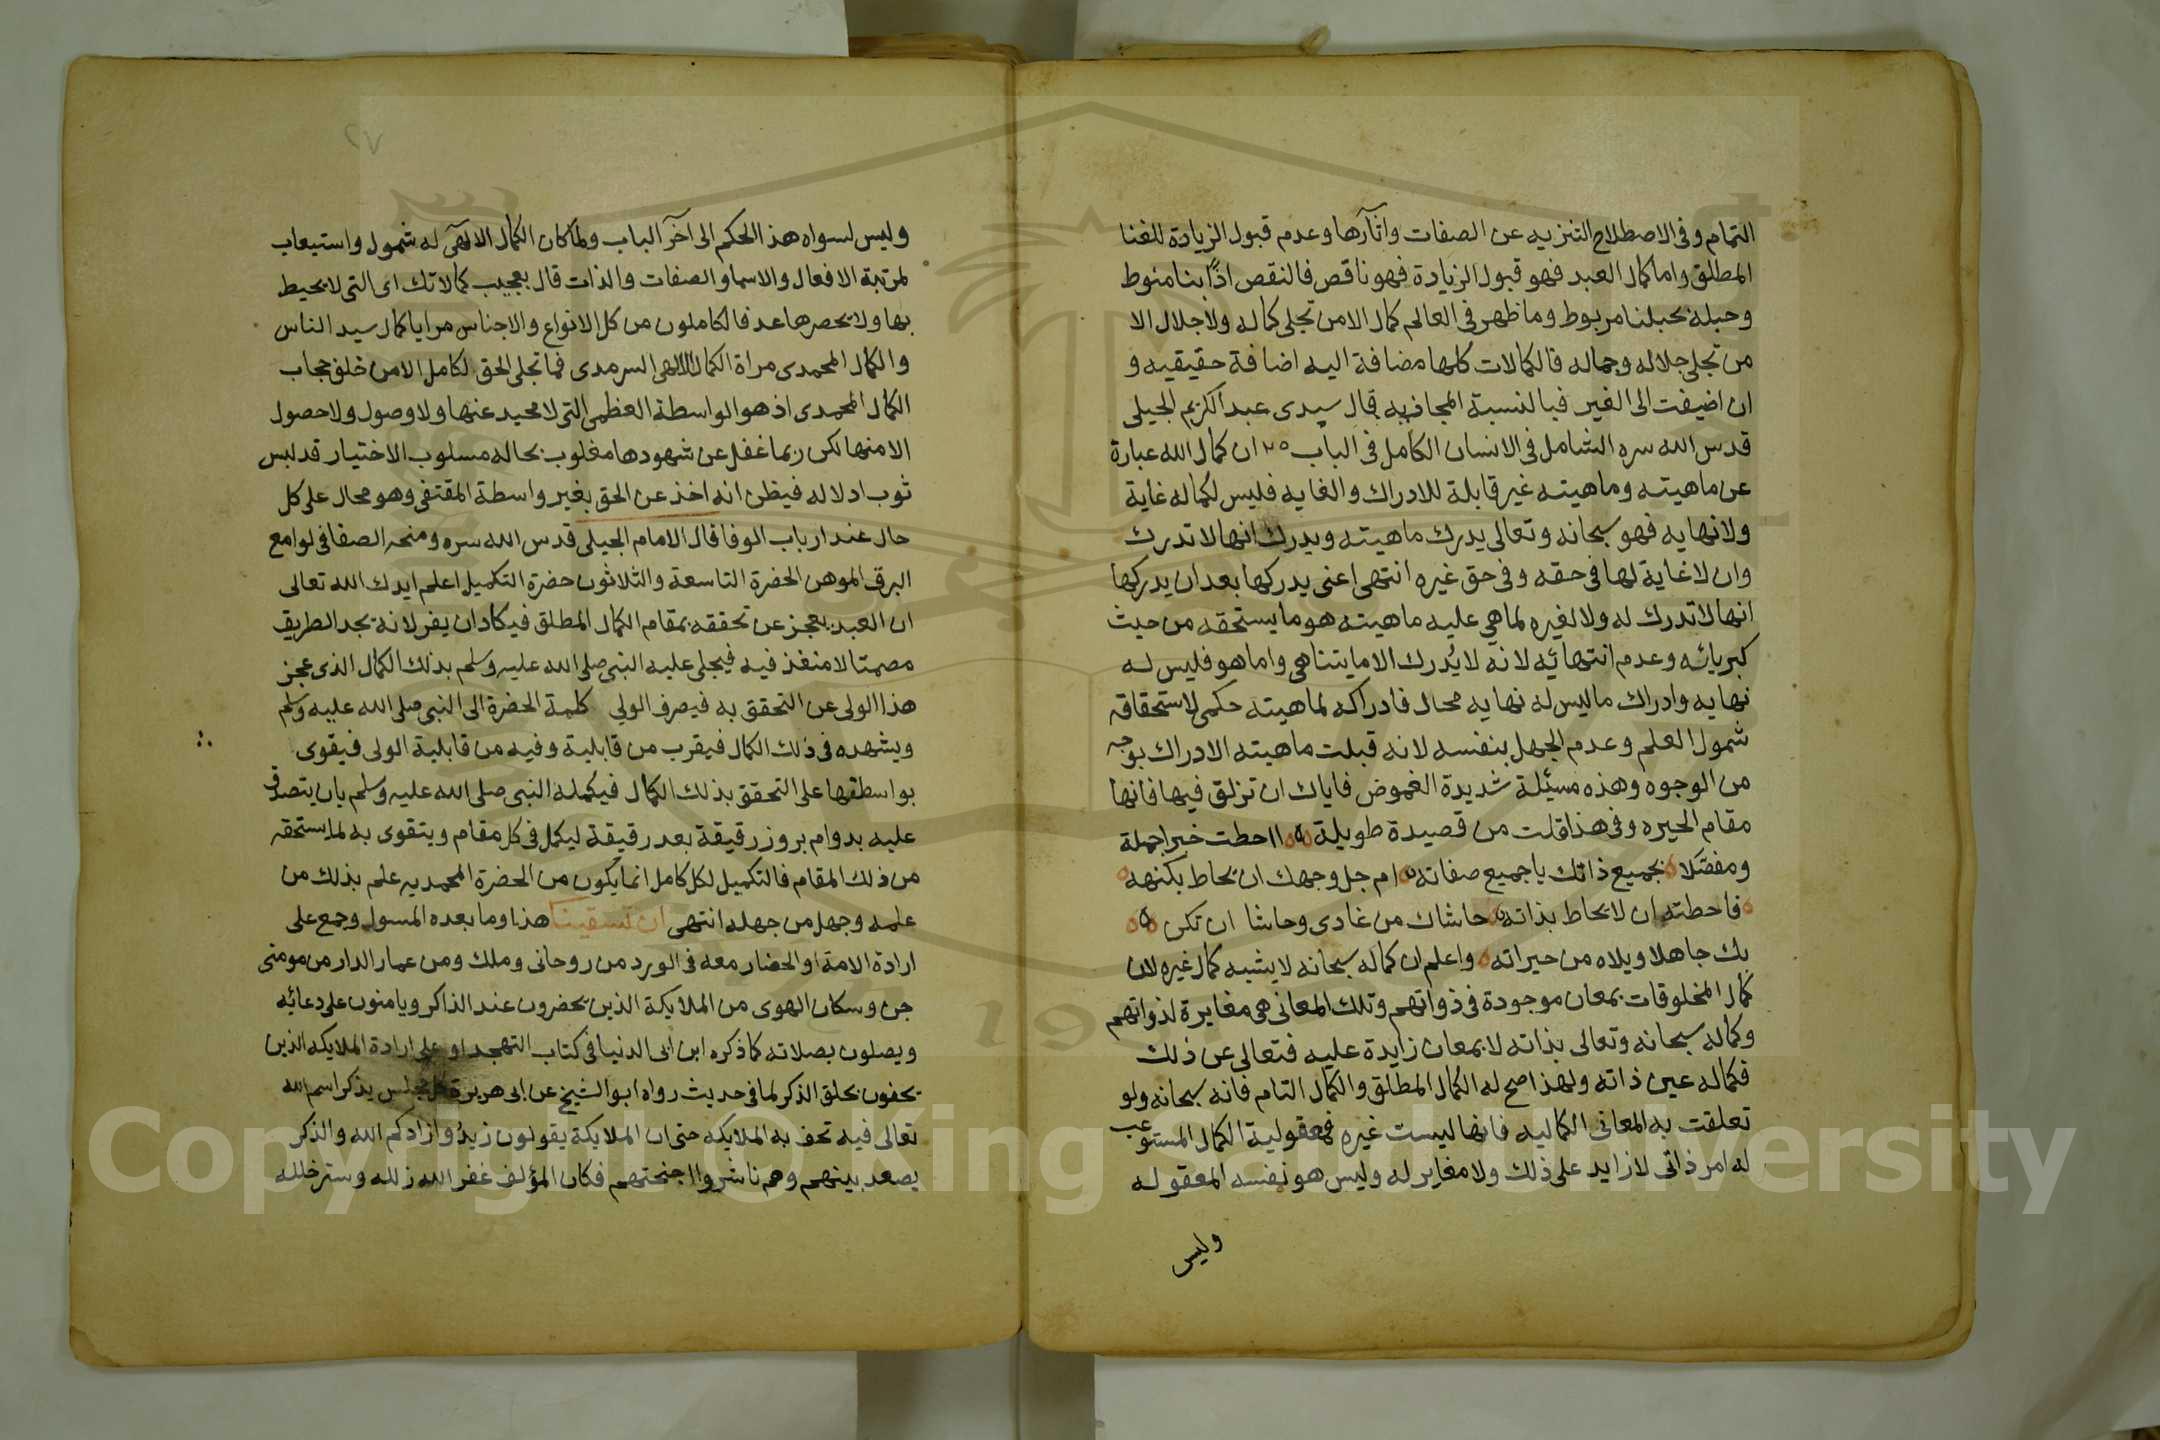 التمام وفى الاصطلاح التنزيه عن الصفات واثارها وعدم قبول الزيادة للغنا
المطلق واما كمال العبد فهو قبول الزيادة فهو ناقص فالنقص اذًا بنا منوط
وحبله بحبلنا مربوط وما ظهر فى العالم كمال الا من تجلى كماله ولا جلال الا
من تجلى جلاله وجماله فالكمالات كلها مضافة اليه اضافة حقيقيه و
ان اضيفت الى الغير فبالنسبة المجازيه قال سيدى عبد الكريم الجيلى
قدس الله سره الشامل فى الانسان الكامل فى الباب ٢٥ ان كمال الله عبارة
عن ماهيته وماهيته غير قابلة للادراك والغايه فليس لكماله غاية
ولا نهايه فهو سبحانه وتعالى يدرك ماهيته ويدرك انها لا تدرك
وان لا غاية لها فى حقه وفى حق غيره انتهى اعنى يدركها بعد ان يدركها
انها لا تدرك له ولا لغيره لما هى عليه ماهيته هو ما يستحقه من حيث
كبريائه وعدم انتهائه لانه لا يُدرك الا ما يتناهى واما هو فليس له
نهايه وادراك ما ليس له نهايه محال فادراكه لماهيته حكمى لاستحقاقه
شمول العلم وعدم الجهل بنفسه لانه قبلت ماهيته الادراك بوجه
من الوجوه وهذه مسئلة شديدة الغموض فاياك ان تزلق فيها فانها
مقام الحيره وفى هذا قلت من قصيدة طويلة ااحطت خبرا جملة
ومفصلا بجميع ذاتك يا جميع صفاته ام جل وجهك ان يحاط بكنهه
فاحطته ان لا يحاط بذاته حاشاك من غادى وحاشا ان تكن
بك جاهلا ويلاه من حيراته واعلم ان كماله سبحانه لا يشبه كمال غيره لان
كمال المخلوقات بمعان موجودة فى ذواتهم وتلك المعانى هى مغايرة لذواتهم
وكماله سبحانه وتعالى بذاته لا بمعان زايدة عليه فتعالى عن ذلك
فكماله عين ذاته ولهذا صح له الكمال المطلق والكمال التام فانه سبحانه ولو
تعلقت به المعانى الكماليه فانها ليست غيره فمعقولية الكمال المستوعب
له امر ذاتى لا زايد على ذلك ولا مغاير له وليس هو نفسه المعقوله
وليس
٢٧
وليس لسواه هذا الحكم الى آخر الباب ولما كان الكمال الالهى له شمول واستيعاب
لمرتبة الافعال والاسما والصفات والذات قال بعجيب كمالاتك اى التى لا يحيط
بها ولا يحصرها عد فالكاملون من كل الانواع والاجناس مرايا كمال سيد الناس
والكمال المحمدى مراة الكمال الالهى السرمدى فما تجلى الحق لكامل الا من خلف حجاب
الكمال المحمدى اذ هو الواسطة العظمى التى لا محيد عنها ولا وصول ولا حصول
الا منها لكن ربما غفل عن شهودها مغلوب بحاله مسلوب الاختيار قد لبس
ثوب ادلاله فيظن انه اخذ عن الحق بغير واسطة المقتفى وهو محال على كل
حال عند ارباب الوفا قال الامام الجيلى قدس الله سره ومنحه الصفا فى لوامع
البرق الموهن الحضرة التاسعة والثلاثون حضرة التكميل اعلم ايدك الله تعالى
ان العبد يعجز عن تحققه بمقام الكمال المطلق فيكاد ان يفر لانه يجد الطريق
مصمتا لا منفذ فيه فيجلى عليه النبى صلى الله عليه وسلم بذلك الكمال الذى عجز
هذا الولى عن التحقق به فيصرف الولي كلمة الحضرة الى النبى صلى الله عليه وسلم
ويشهده فى ذلك الكمال فيقرب من قابلية وفيه من قابلية الولى فيقوى
بواسطتها على التحقق بذلك الكمال فيكمله النبى صلى الله عليه وسلم بان يتصدق
عليه بدوام بروز رقيقة بعد رقيقة ليكمل فى كل مقام ويتقوى به لما استحقه
من ذلك المقام فالتكميل لكل كامل انما يكون من الحضرة المحمديه علم بذلك من
علمه وجهل من جهله انتهى ان تسقينا هذا وما بعده المسول وجمع على
ارادة الامة او الحضار معه فى الورد من روحانى وملك ومن عمار الدار من مومنى
جن وسكان الهوى من الملايكة الذين يحضرون عند الذاكر ويامنون على دعائه
ويصلون بصلاته كما ذكره ابن ابى الدنيا فى كتاب التهجد او على ارادة الملايكه الذين
يحفون بحلق الذكر لما فى حديث رواه ابو الشيخ عن ابى هريرة كل مجلس يذكر اسم الله
تعالى فيه تحف به الملايكه حتى ان الملايكة يقولون زيدُوا زادكم الله والذكر
يصعد بينهم وهم ناشروا اجنحتهم فكان المؤلف غفر الله زلله وستر خلله
Copyright © King Saud University